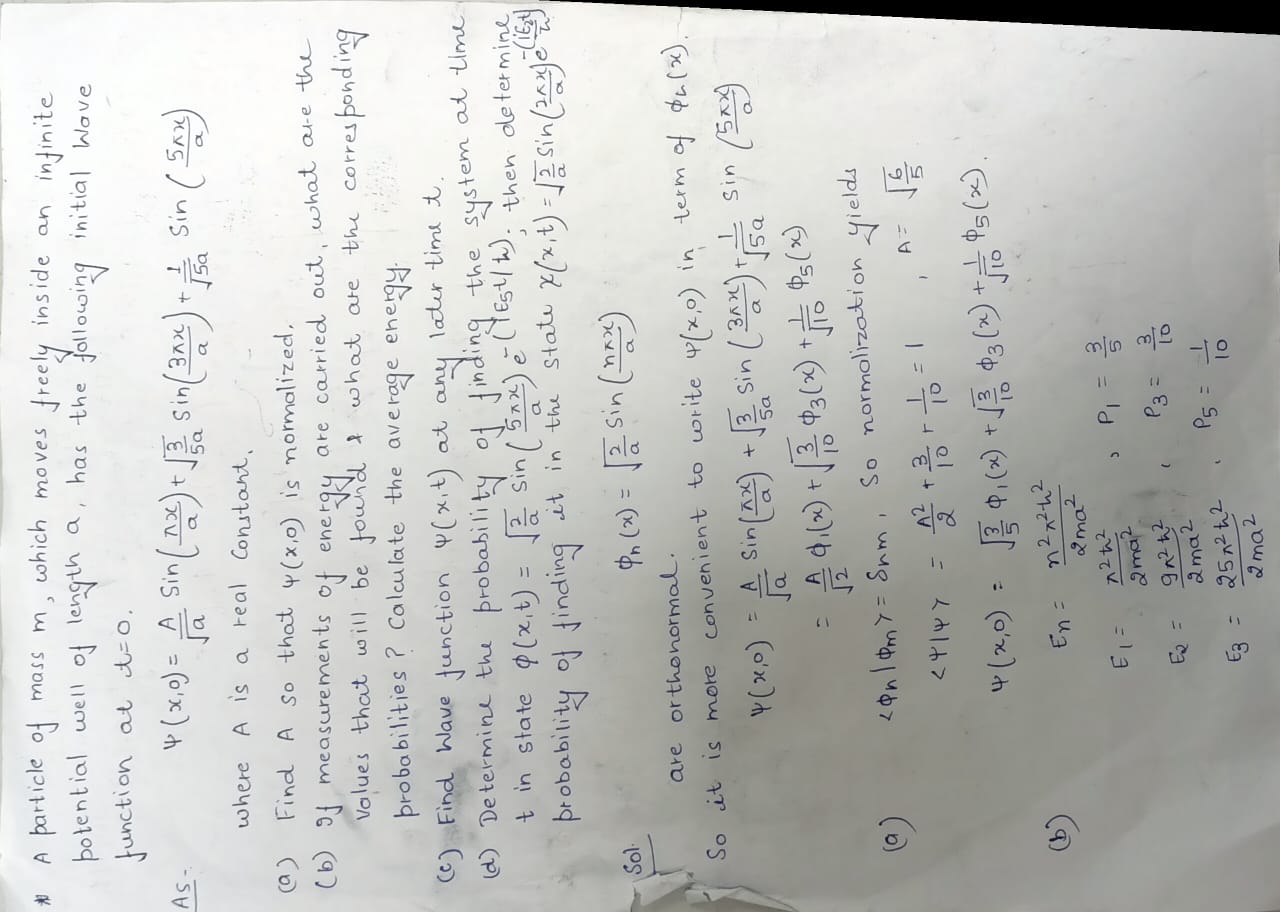 * A particle of mass m, which moves freely inside an infinite
potential well of length a, has the following initial Wave
function at t=0.
As- Ψ(x,0) = A/√a Sin(πx/a) + √(3/5a) Sin(3πx/a) + 1/√5a Sin (5πx/a)
where A is a real Constant.
(a) Find A so that Ψ(x,0) is normalized.
(b) If measurements of energy are carried out, what are the
values that will be found & what are the corresponding
probabilities? Calculate the average energy.
(c) Find Wave function Ψ(x,t) at any later time t.
(d) Determine the probability of finding the system at time
t in state φ(x,t) = √(2/a) sin(5πx/a) e^-(iE5t/ħ); then determine
probability of finding it in the state χ(x,t) = √(2/a) sin(2πx/a) e^-(iE2t/ħ)
Sol. φn(x) = √(2/a) Sin(nπx/a)
are orthonormal.
So it is more convenient to write Ψ(x,0) in term of φn(x).
Ψ(x,0) = A/√a Sin(πx/a) + √(3/5a) Sin(3πx/a) + 1/√5a Sin (5πx/a)
= A/√2 φ1(x) + √(3/10) φ3(x) + 1/√10 φ5(x)
(a) <φn|φm> = δnm, So normolization yields
<Ψ|Ψ> = A²/2 + 3/10 + 1/10 = 1 , A = √(6/5)
Ψ(x,0) = √(3/5) φ1(x) + √(3/10) φ3(x) + 1/√10 φ5(x).
(b) En = n²π²ħ²/2ma²
E1 = π²ħ²/2ma² , P1 = 3/5
E2 = 9π²ħ²/2ma² , P3 = 3/10
E3 = 25π²ħ²/2ma² , P5 = 1/10